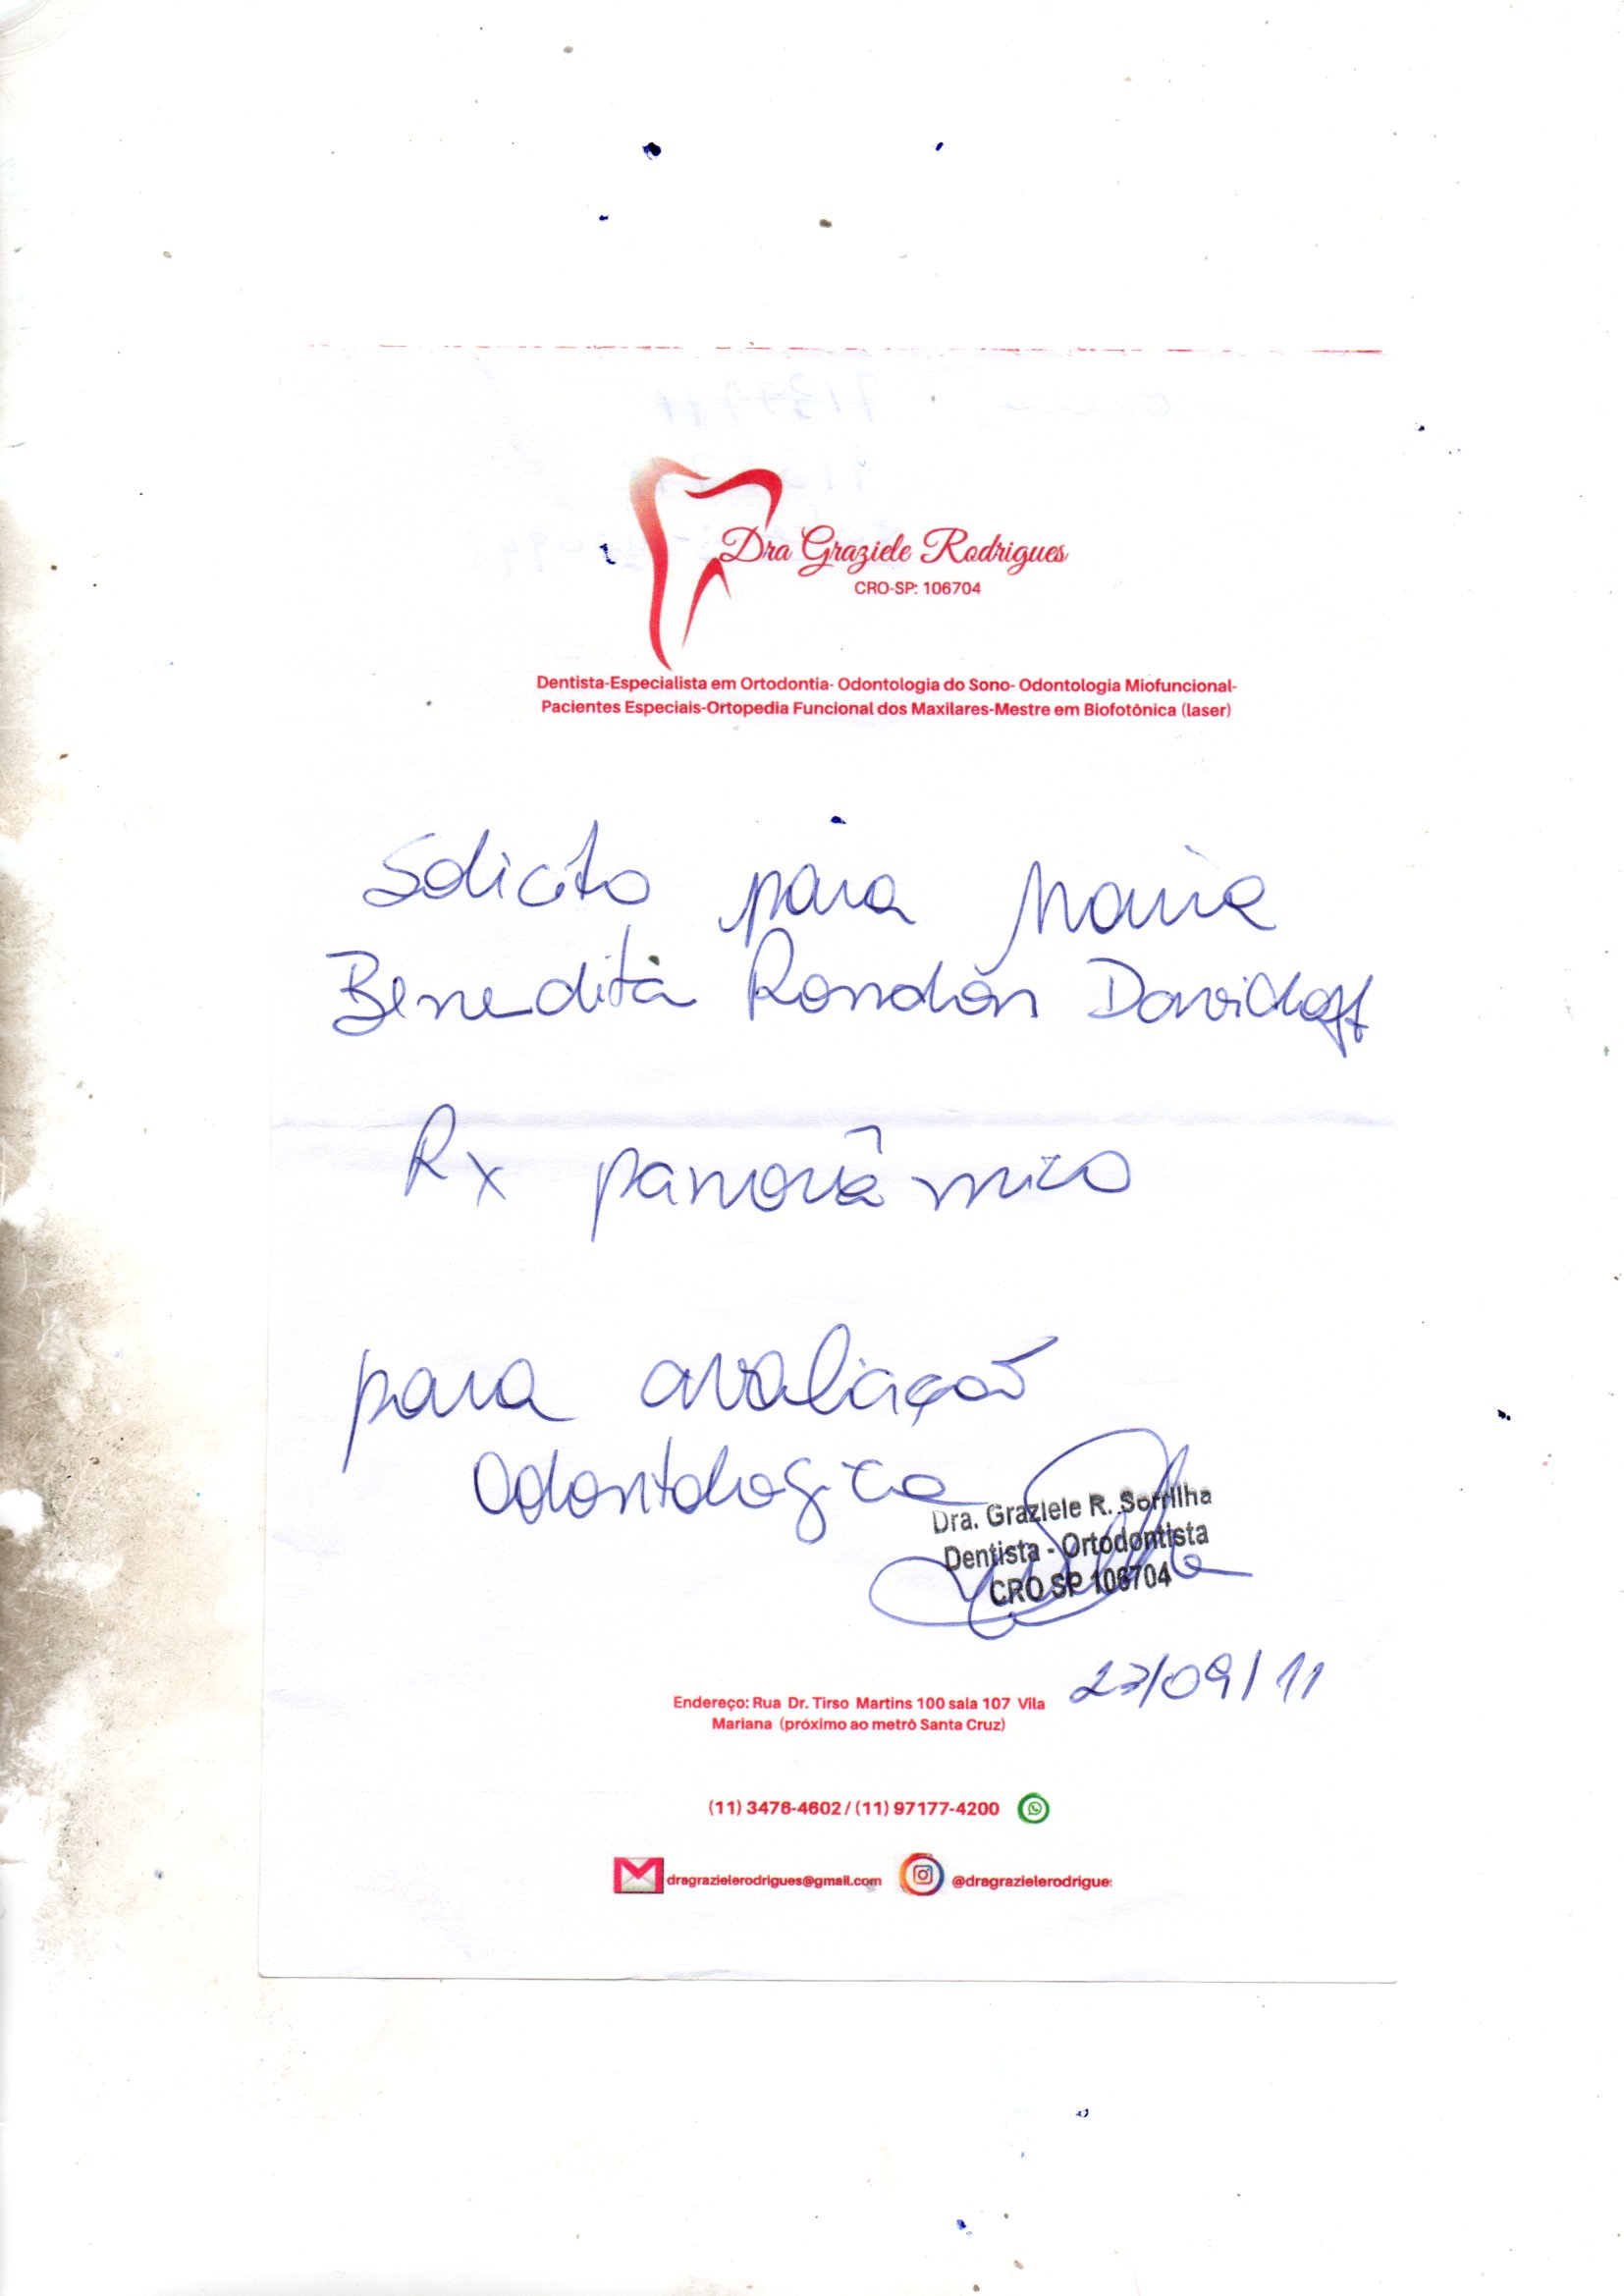 Dra Graziele Rodrigues
CRO-SP: 106704
Dentista-Especialista em Ortodontia- Odontologia do Sono- Odontologia Miofuncional-
Pacientes Especiais-Ortopedia Funcional dos Maxilares-Mestre em Biofotônica (laser)
Solicito para Maria
Benedita Rondon Davidoff
Rx panorâmico
para avaliação
Odontologica
Dra. Graziele R. Sorrilha
Dentista - Ortodontista
CRO SP 106704
27/09/11
Endereço: Rua Dr. Tirso Martins 100 sala 107 Vila
Mariana (próximo ao metrô Santa Cruz)
(11) 3476-4602 / (11) 97177-4200
dragrazielerodrigues@gmail.com @dragrazielerodrigue